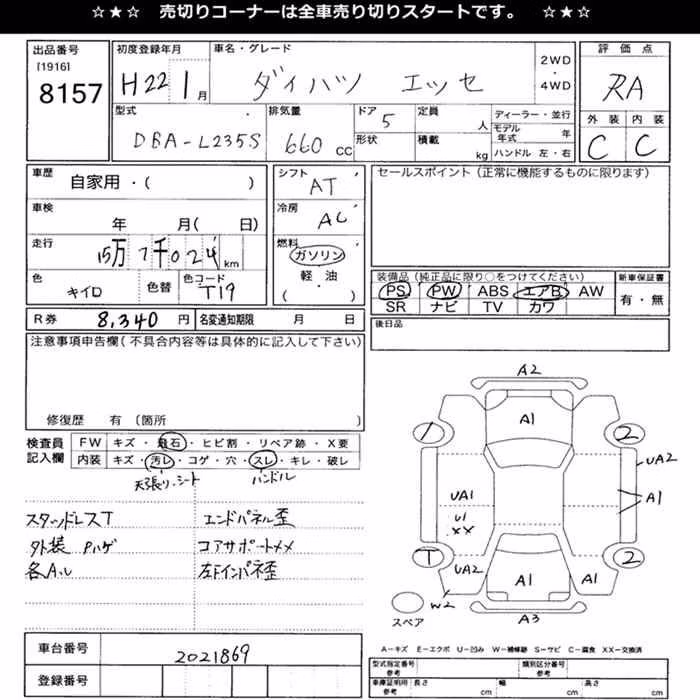 ☆★☆ 売切りコーナーは全車売り切りスタートです。 ☆★☆
出品番号
[1916]
8157
初度登録年月
H22 1月
車名・グレード
ダイハツ エッセ
2WD
・
4WD
評価点
RA
外装 内装
C C
型式
DBA-L235S
排気量
660 cc
ドア 5
形状
定員 人
積載 kg
ディーラー・並行
モデル年式 年
ハンドル 左・右
車歴
自家用・( )
車検
年 月( 日)
走行
15万7千024km
色
キイロ
色替
色コード
T19
シフト
AT
冷房
AC
燃料
ガソリン
軽・油
( )
セールスポイント(正常に機能するものに限ります)
装備品(純正品に限り○をつけてください)
PS PW ABS エアB AW
SR ナビ TV カワ
新車保証書
有・無
R券 8,340 円
名変通知期限 月 日
後日品
注意事項申告欄(不具合内容等は具体的に記入して下さい)
修復歴 有(箇所 )
検査員
記入欄
FW キズ・飛石・ヒビ割・リペア跡・X要
内装 キズ・汚レ・コゲ・穴・スレ・キレ・破レ
天張り・シート ハンドル
スタッドレスT エンドパネル歪
外装 Pハゲ コアサポートメメ
各Aル 左Fインパネ歪
車台番号 2021869
登録番号
A2
A1
1 2
UA2
UA1
A1
U1
XX
T 2
UA2
A1
A1
W2
A3
スペア
A－キズ E－エクボ U－凹み W－補修跡 S－サビ C－腐食 XX－交換済
型式指定番号
参考
類別区分番号
参考
車庫証明用
参考
長さ cm 幅 cm 高さ cm